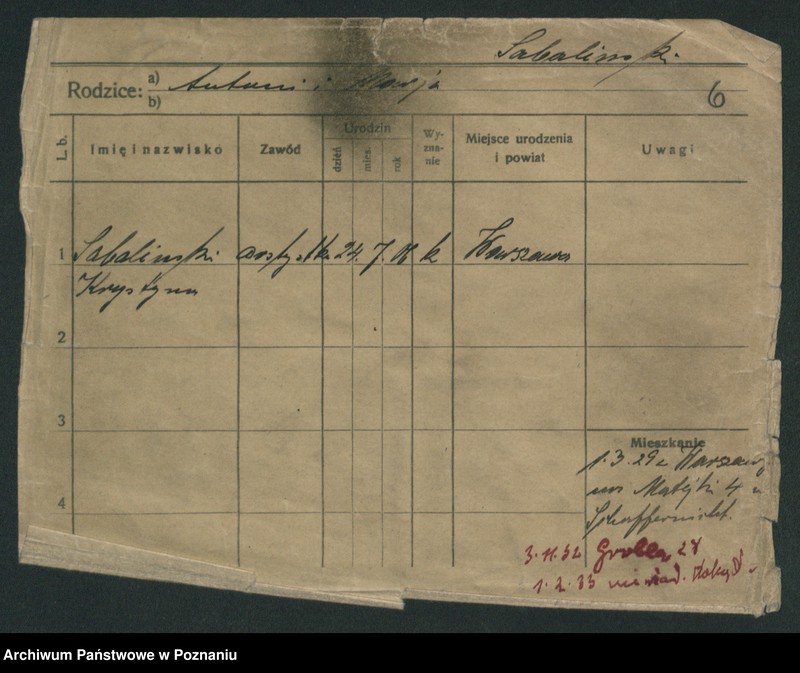 Sabalinski
Rodzice: a) Antoni i Marja
b)
6
L. b. Imię i nazwisko Zawód Urodzin dzień mies. rok Wyznanie Miejsce urodzenia i powiat Uwagi
1 Sabalinski artystka 24. 7. 08 k Warszawa
Krystyna
2
3
Mieszkanie
1.3.29 z Warszawy
Matejki 4
4
3.11.32 Grobla 28
1.2.33
Archiwum Państwowe w Poznaniu